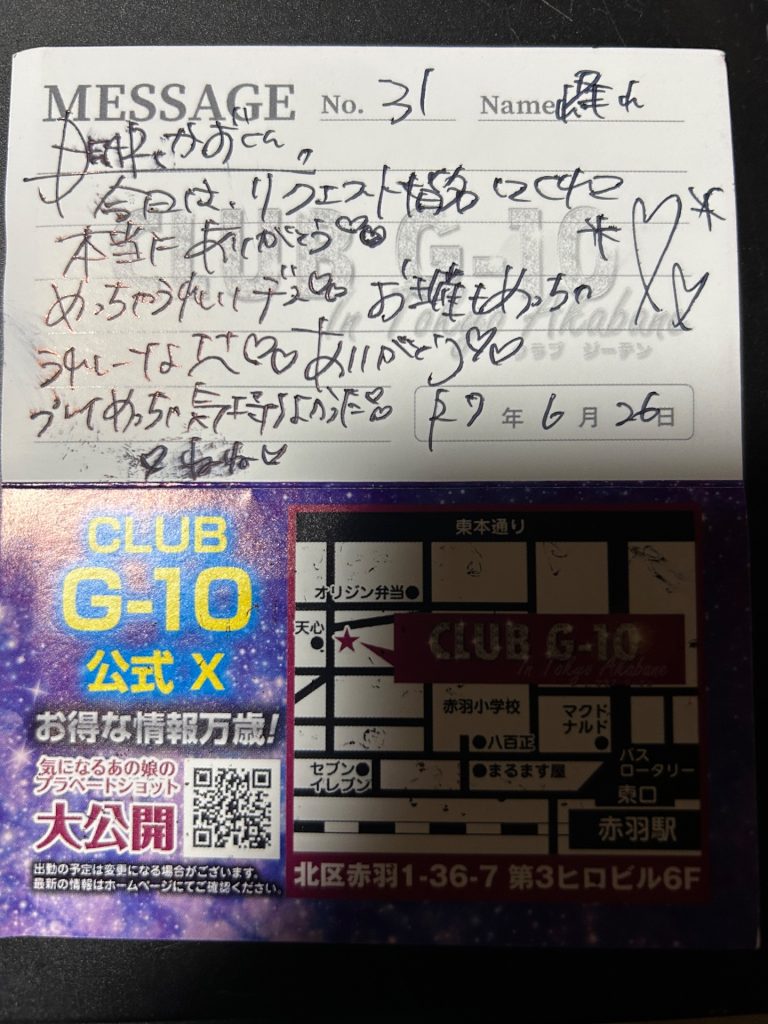 MESSAGE No. 31 Name
今日は、リクエスト指名してくれて
本当にありがとう♡♡
めっちゃうれしいデス♡♡ お土産もめっちゃ
うれしーなス♡♡ ありがとう♡♡
プレイめっちゃ気持ちよかった
R7年6月26日
CLUB G-10
In Tokyo Akabane
クラブ ジーテン
CLUB
G-10
公式 X
お得な情報万歳!
気になるあの娘の
プラベートショット
大公開
出勤の予定は変更になる場合がございます。
最新の情報はホームページにてご確認ください。
東本通り
オリジン弁当
天心
CLUB G-10
In Tokyo Akabane
赤羽小学校
マクド
ナルド
八百正
セブン
イレブン
まるます屋
バス
ロータリー
東口
赤羽駅
北区赤羽1-36-7 第3ヒロビル6F